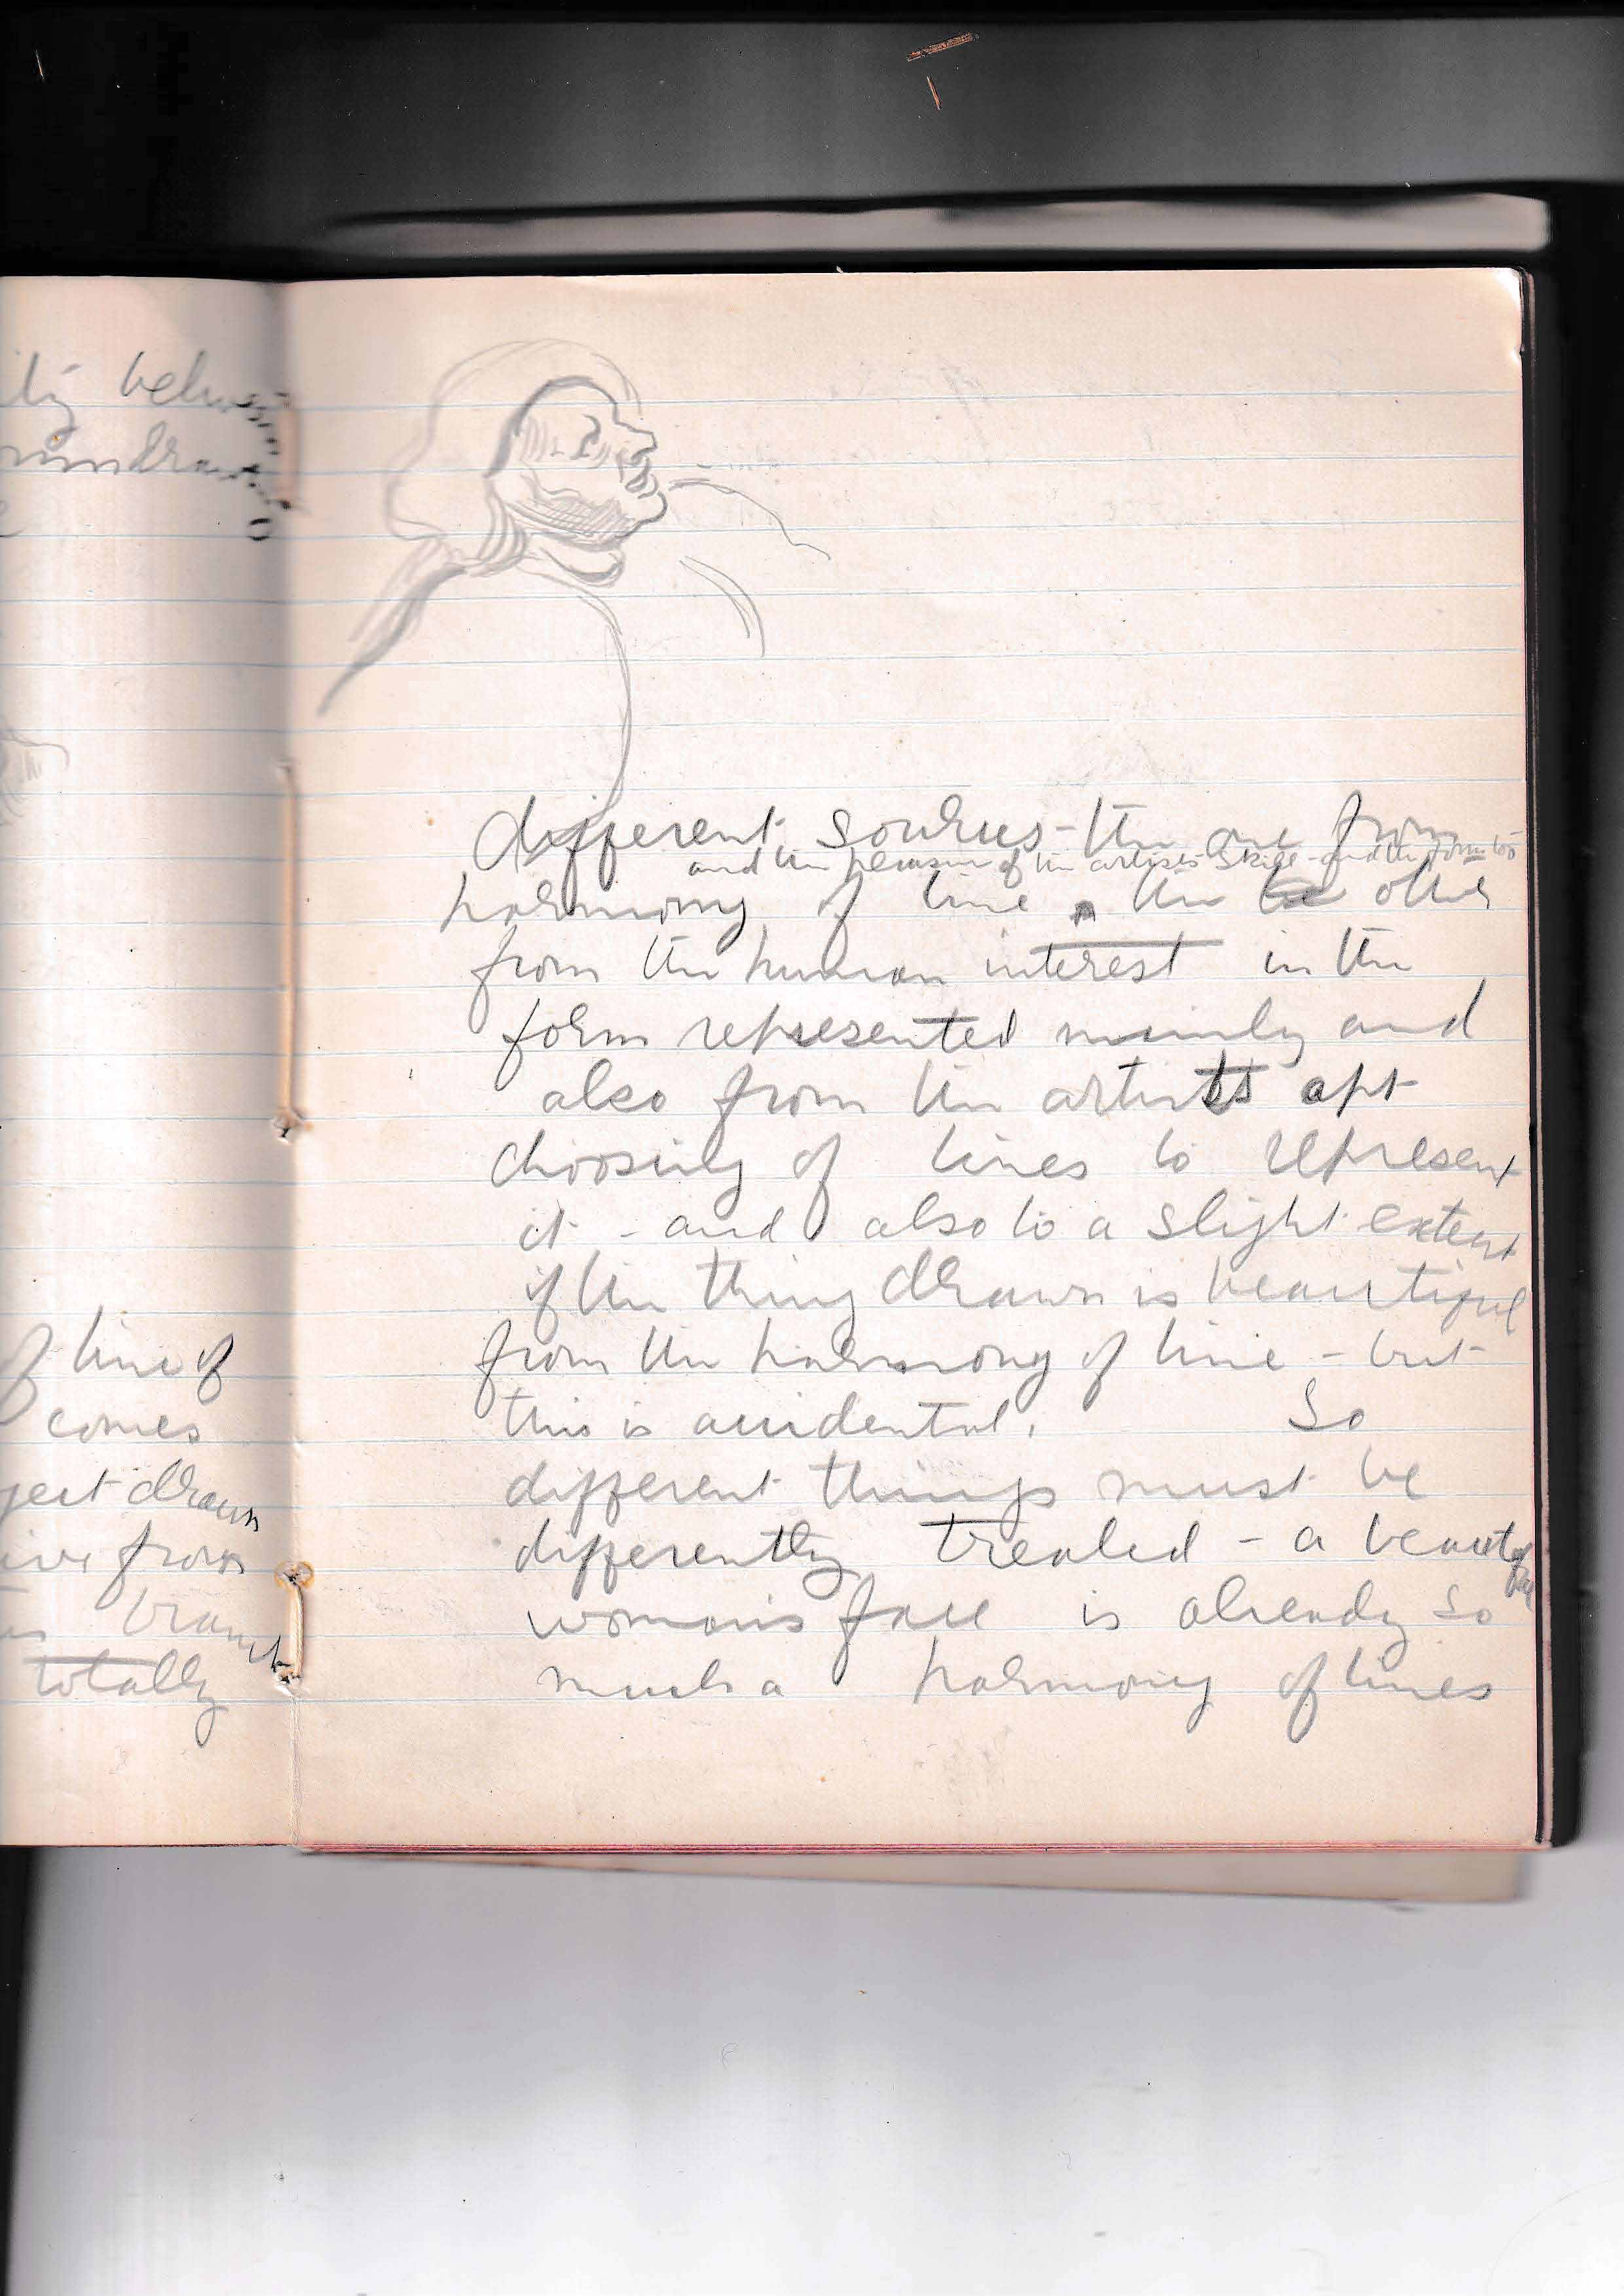 ity betw
of line of
comes
ject drawn
ive from
totally
different sources - the one from
and the pleasure of the artists skill - and the form too
harmony of line the other
from the human interest in the
form represented mainly and
also from the artists apt
choosing of lines to represent
it - and also to a slight extent
if the thing drawn is beautiful
from the harmony of line - but
this is accidental. So
different things must be
differently treated - a beautiful
woman's face is already so
much a harmony of lines